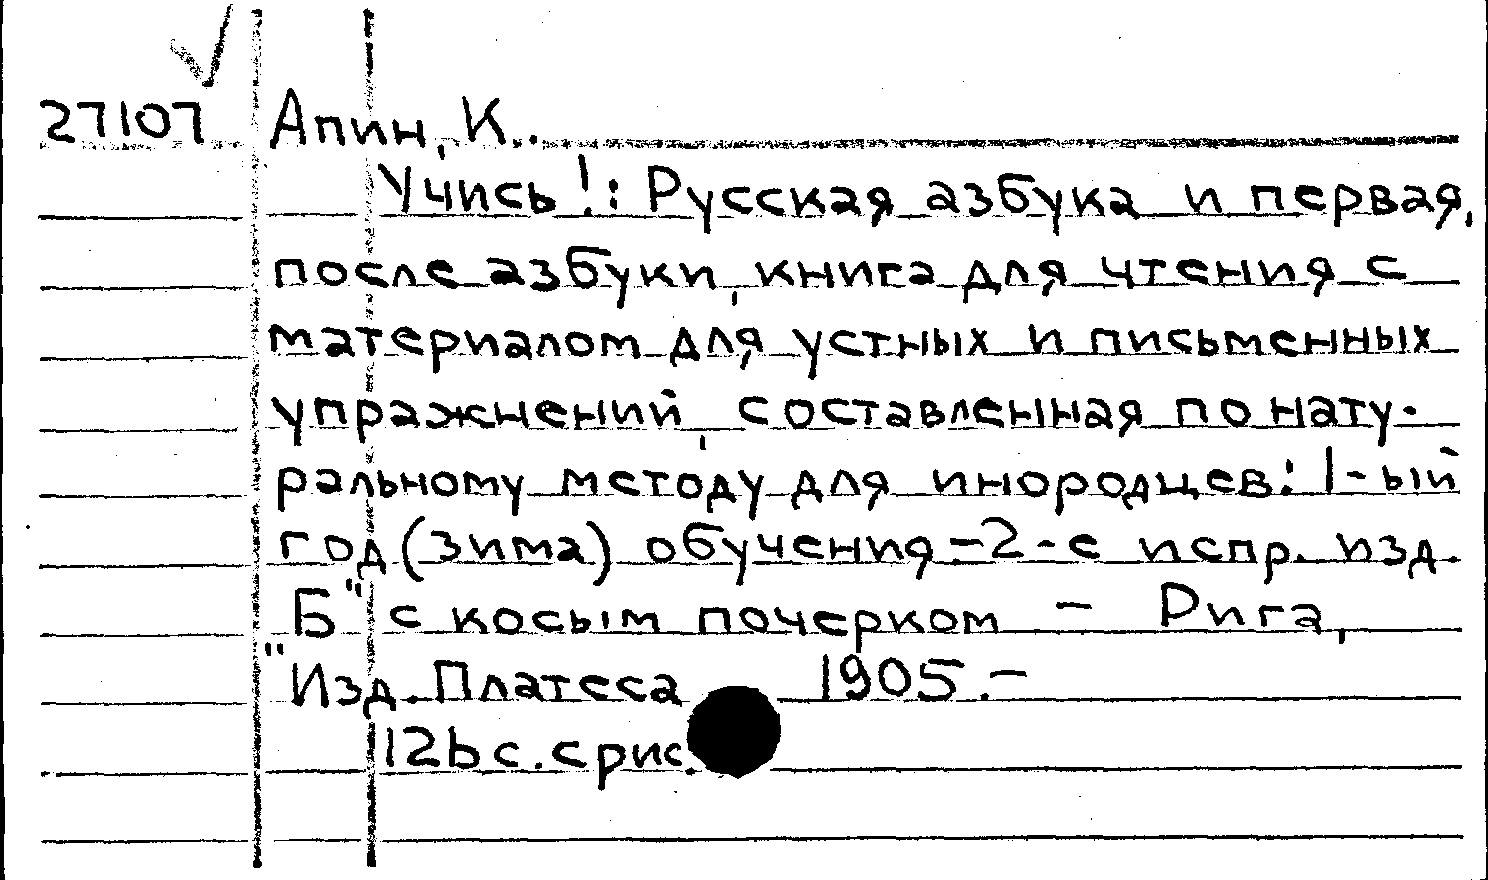 27107 Апин, К..
Учись!: Русская азбука и первая,
после азбуки, книга для чтения с
материалом для устных и письменных
упражнений, составленная по нату-
ральному методу для инородцев: 1-ый
год (зима) обучения - 2-е испр. изд.
Б" с косым почерком - Рига,
"Изд. Платеса 1905.-
126 с. с рис.